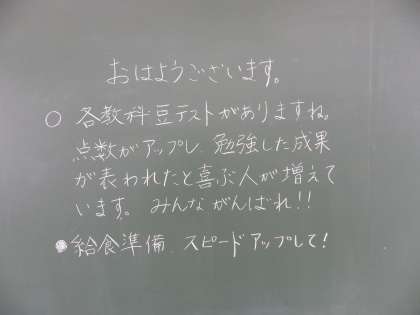 おはようございます。
○ 各教科豆テストがありますね。
点数がアップし、勉強した成果
が表われたと喜ぶ人が増えて
います。みんながんばれ!!
● 給食準備、スピードアップして!